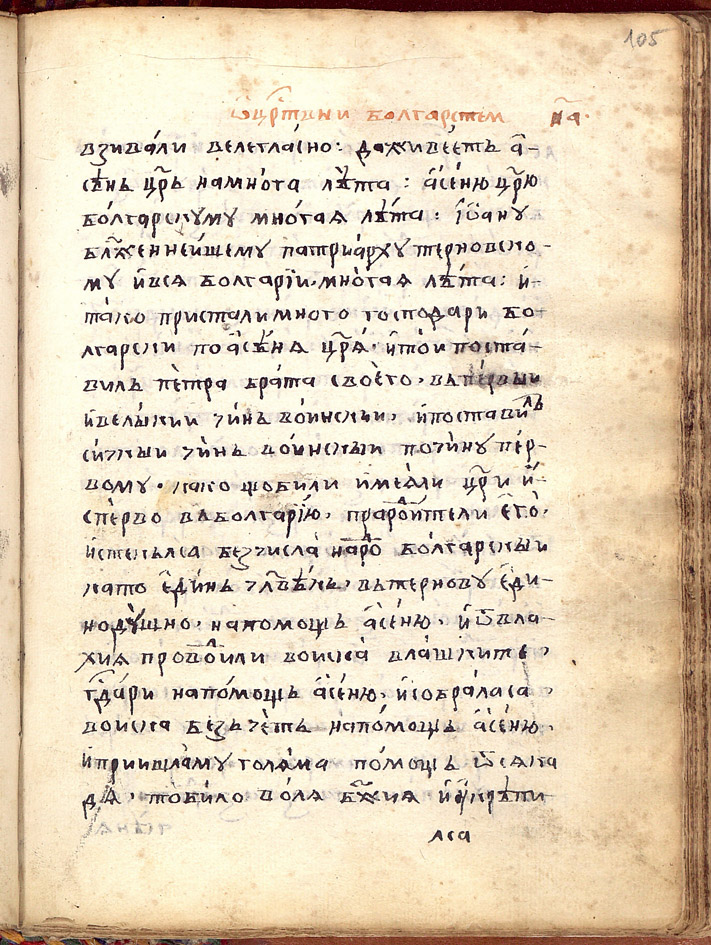 105
ѿ црⷭ҇твїи болгарстем н҃а
взивали велегласно: да живеетъ а҆-
сѣнь цр҃ь на многа лѣта: а҆сеню цр҃ю
болгарскуму многая лѣта: і҆ѡану
блж҃еннейшему патриарху терновско-
му и҆ вся болгарїи, многая лѣта: и҆
тако пристали много господари бо-
лгарски по а҆сѣня цр҃я. и҆ той поста-
вилъ петра брата своего, въ первыи
и҆ великии чинь воински, и҆ поставилъ
сичкыи чинь воинскыи по чину пер-
вому. како що били имеяли цр҃и и҆-
сперво въ болгарїю, прародители его.
и҆ стекълса без числа народ болгарскыи
като единь члв҃екь, въ терновѹ еди-
нодушно, на помощъ а҆сеню. и҆ ѿ вла-
хия проводили воиска влашките
гдⷭ҇ари на помощъ а҆сеню, и҆ собраласа
воиска безъ четъ на помощъ а҆сеню.
и҆ приишла му голяма помощъ ѿ сяка
дѣ, то било воля бж҃ия и҆ укрѣпи
лса